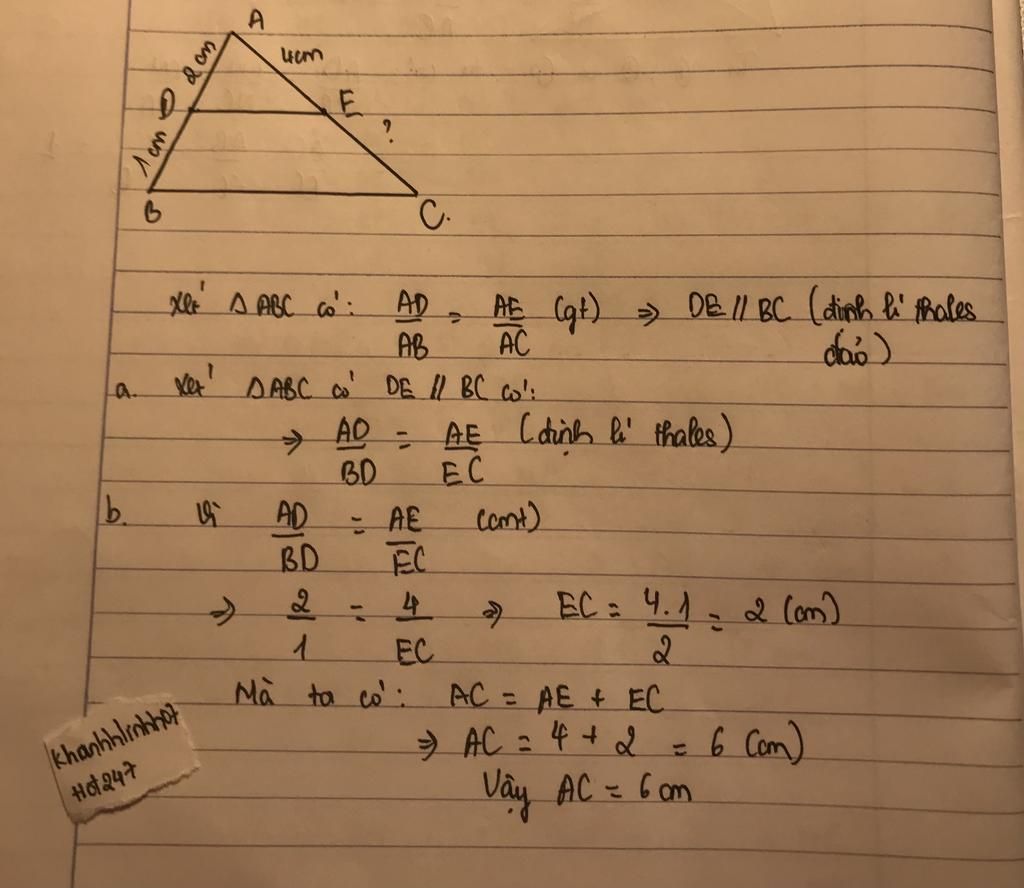 A
2cm
4cm
D
E
?
1cm
B
C.
Xét ΔABC có: AD/AB = AE/AC (gt) ⇒ DE // BC (định lí thales
đảo)
a. Xét ΔABC có DE // BC có:
⇒ AD/BD = AE/EC (định lí thales)
b. Vì AD/BD = AE/EC (cmt)
⇒ 2/1 = 4/EC ⇒ EC = 4.1/2 = 2 (cm)
Mà ta có: AC = AE + EC
⇒ AC = 4 + 2 = 6 (cm)
Vậy AC = 6cm
Khanhhlinhh07
H0t247